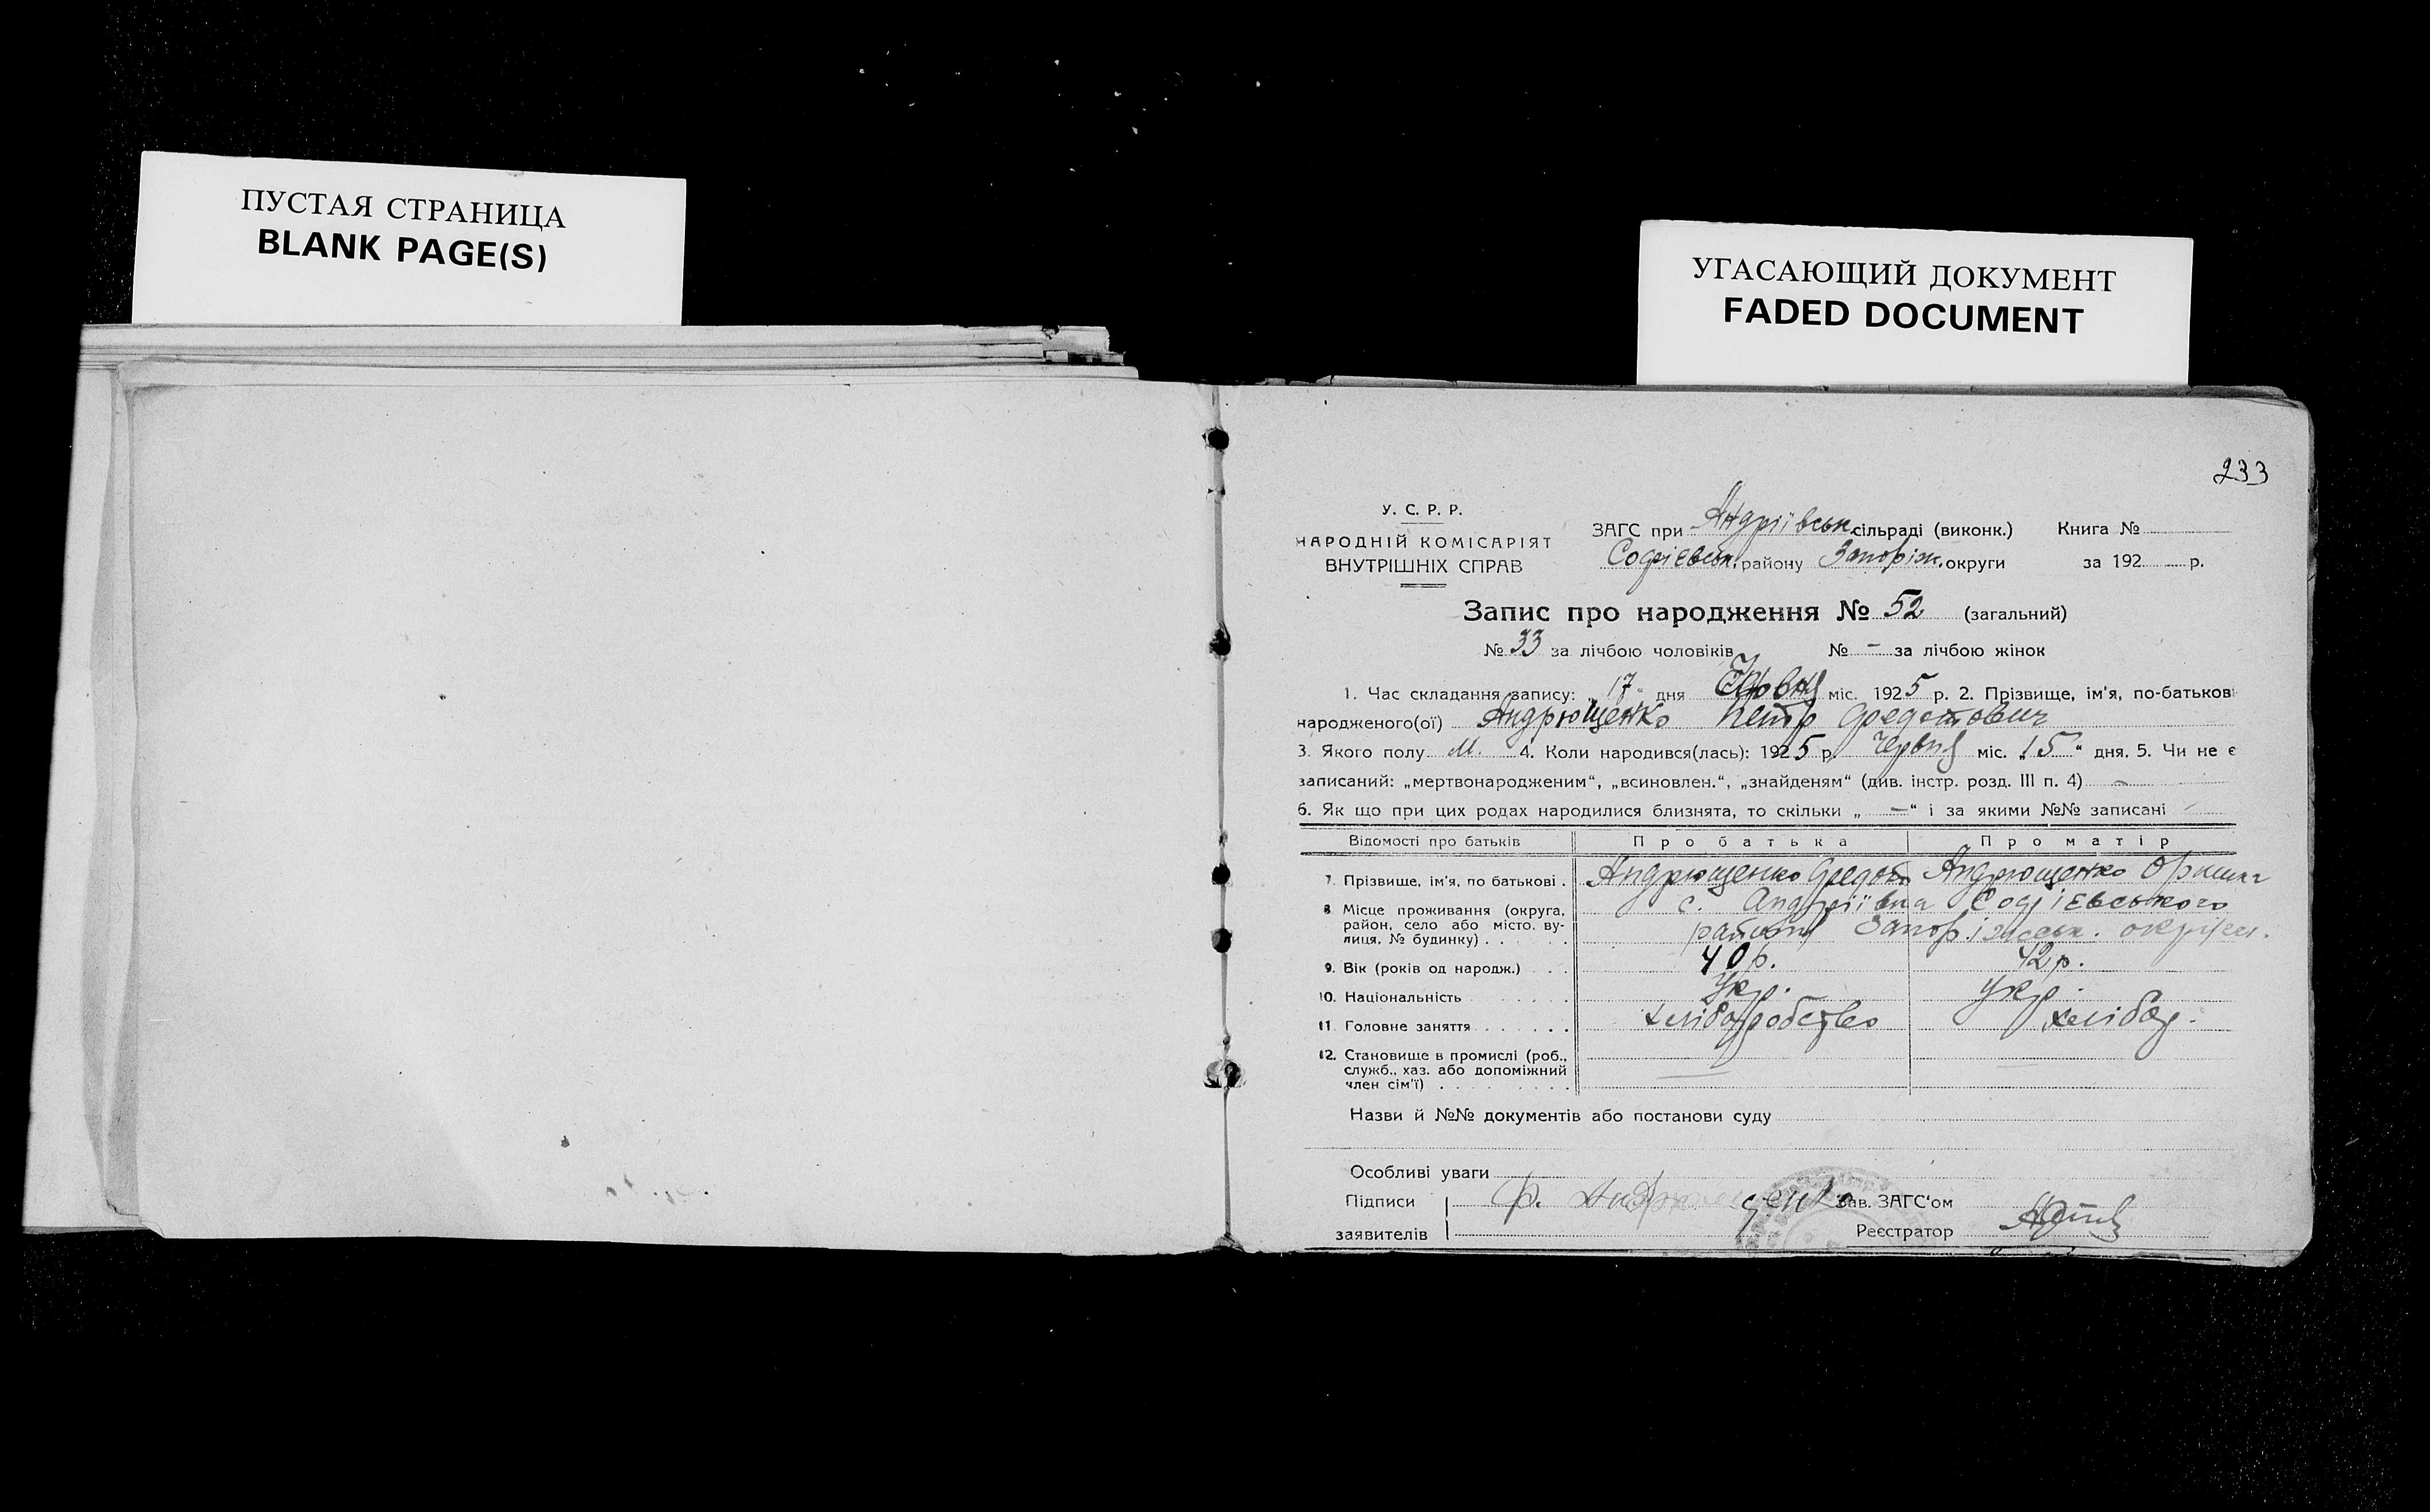 ПУСТАЯ СТРАНИЦА
BLANK PAGE(S)
УГАСАЮЩИЙ ДОКУМЕНТ
FADED DOCUMENT
233
У. С. Р. Р.
НАРОДНІЙ КОМІСАРІЯТ
ВНУТРІШНІХ СПРАВ
ЗАГС при Андріївськ. сільраді (виконк.) Книга №
Софієвськ. району Запоріж. округи за 192 р.
Запис про народження № 52 (загальний)
№ 33 за лічбою чоловіків № - за лічбою жінок
1. Час складання запису: „17" дня міс. 1925 р. 2. Прізвище, ім'я, по-батькові
народженого(ої) Андрющенко Петр Федотович
3. Якого полу М. 4. Коли народився(лась): 1925 р. Червня міс. „15" дня. 5. Чи не є
записаний: „мертвонародженим", „всиновлен.", „знайденям" (див. інстр. розд. III п. 4) -
6. Як що при цих родах народилися близнята, то скільки „ — " і за якими №№ записані -
Відомості про батьків Про батька Про матір
7. Прізвище, ім'я, по батькові . Андрющенко Федот Андрющенко Оришка
8. Місце проживання (округа, район, село або місто, вулиця, № будинку) . . . . . с. Андріївка Софієвського
района Запоріжськ. округи.
9. Вік (років од народж.) . . . 40 р. 42 р.
10. Національність . . . . . . Укр. Укр.
11. Головне заняття . . . . . . хліборобство хлібор.
12. Становище в промислі (роб.,
служб., хаз. або допоміжний
член сім'ї) . . . . . . . .
Назви й №№ документів або постанови суду
Особливі уваги
Підписи Ф. Андрющенко Зав. ЗАГС'ом
заявителів Реєстратор